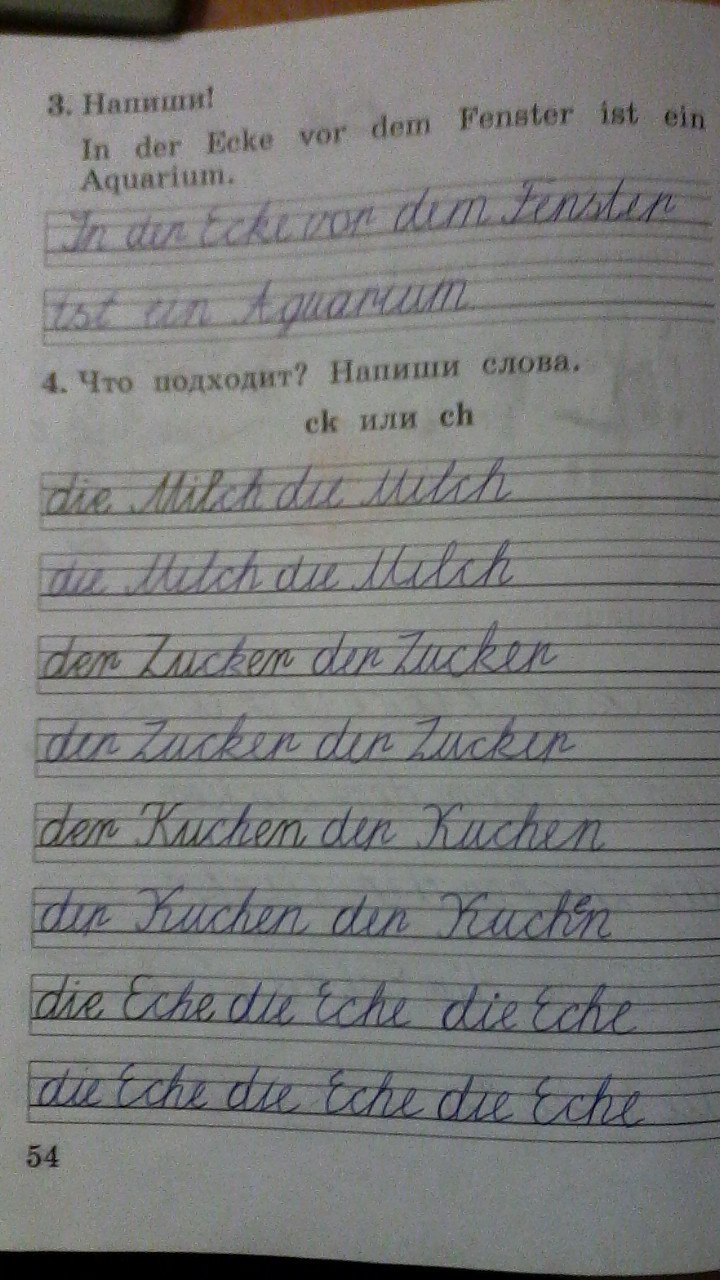 3. Напиши!
In der Ecke vor dem Fenster ist ein
Aquarium.
In der Ecke vor dem Fenster
ist ein Aquarium
4. Что подходит? Напиши слова.
ck или ch
die Milch die Milch
die Milch die Milch
der Zucker der Zucker
der Zucker der Zucker
der Kuchen der Kuchen
der Kuchen der Kuchen
die Eche die Eche die Eche
die Eche die Eche die Eche
54